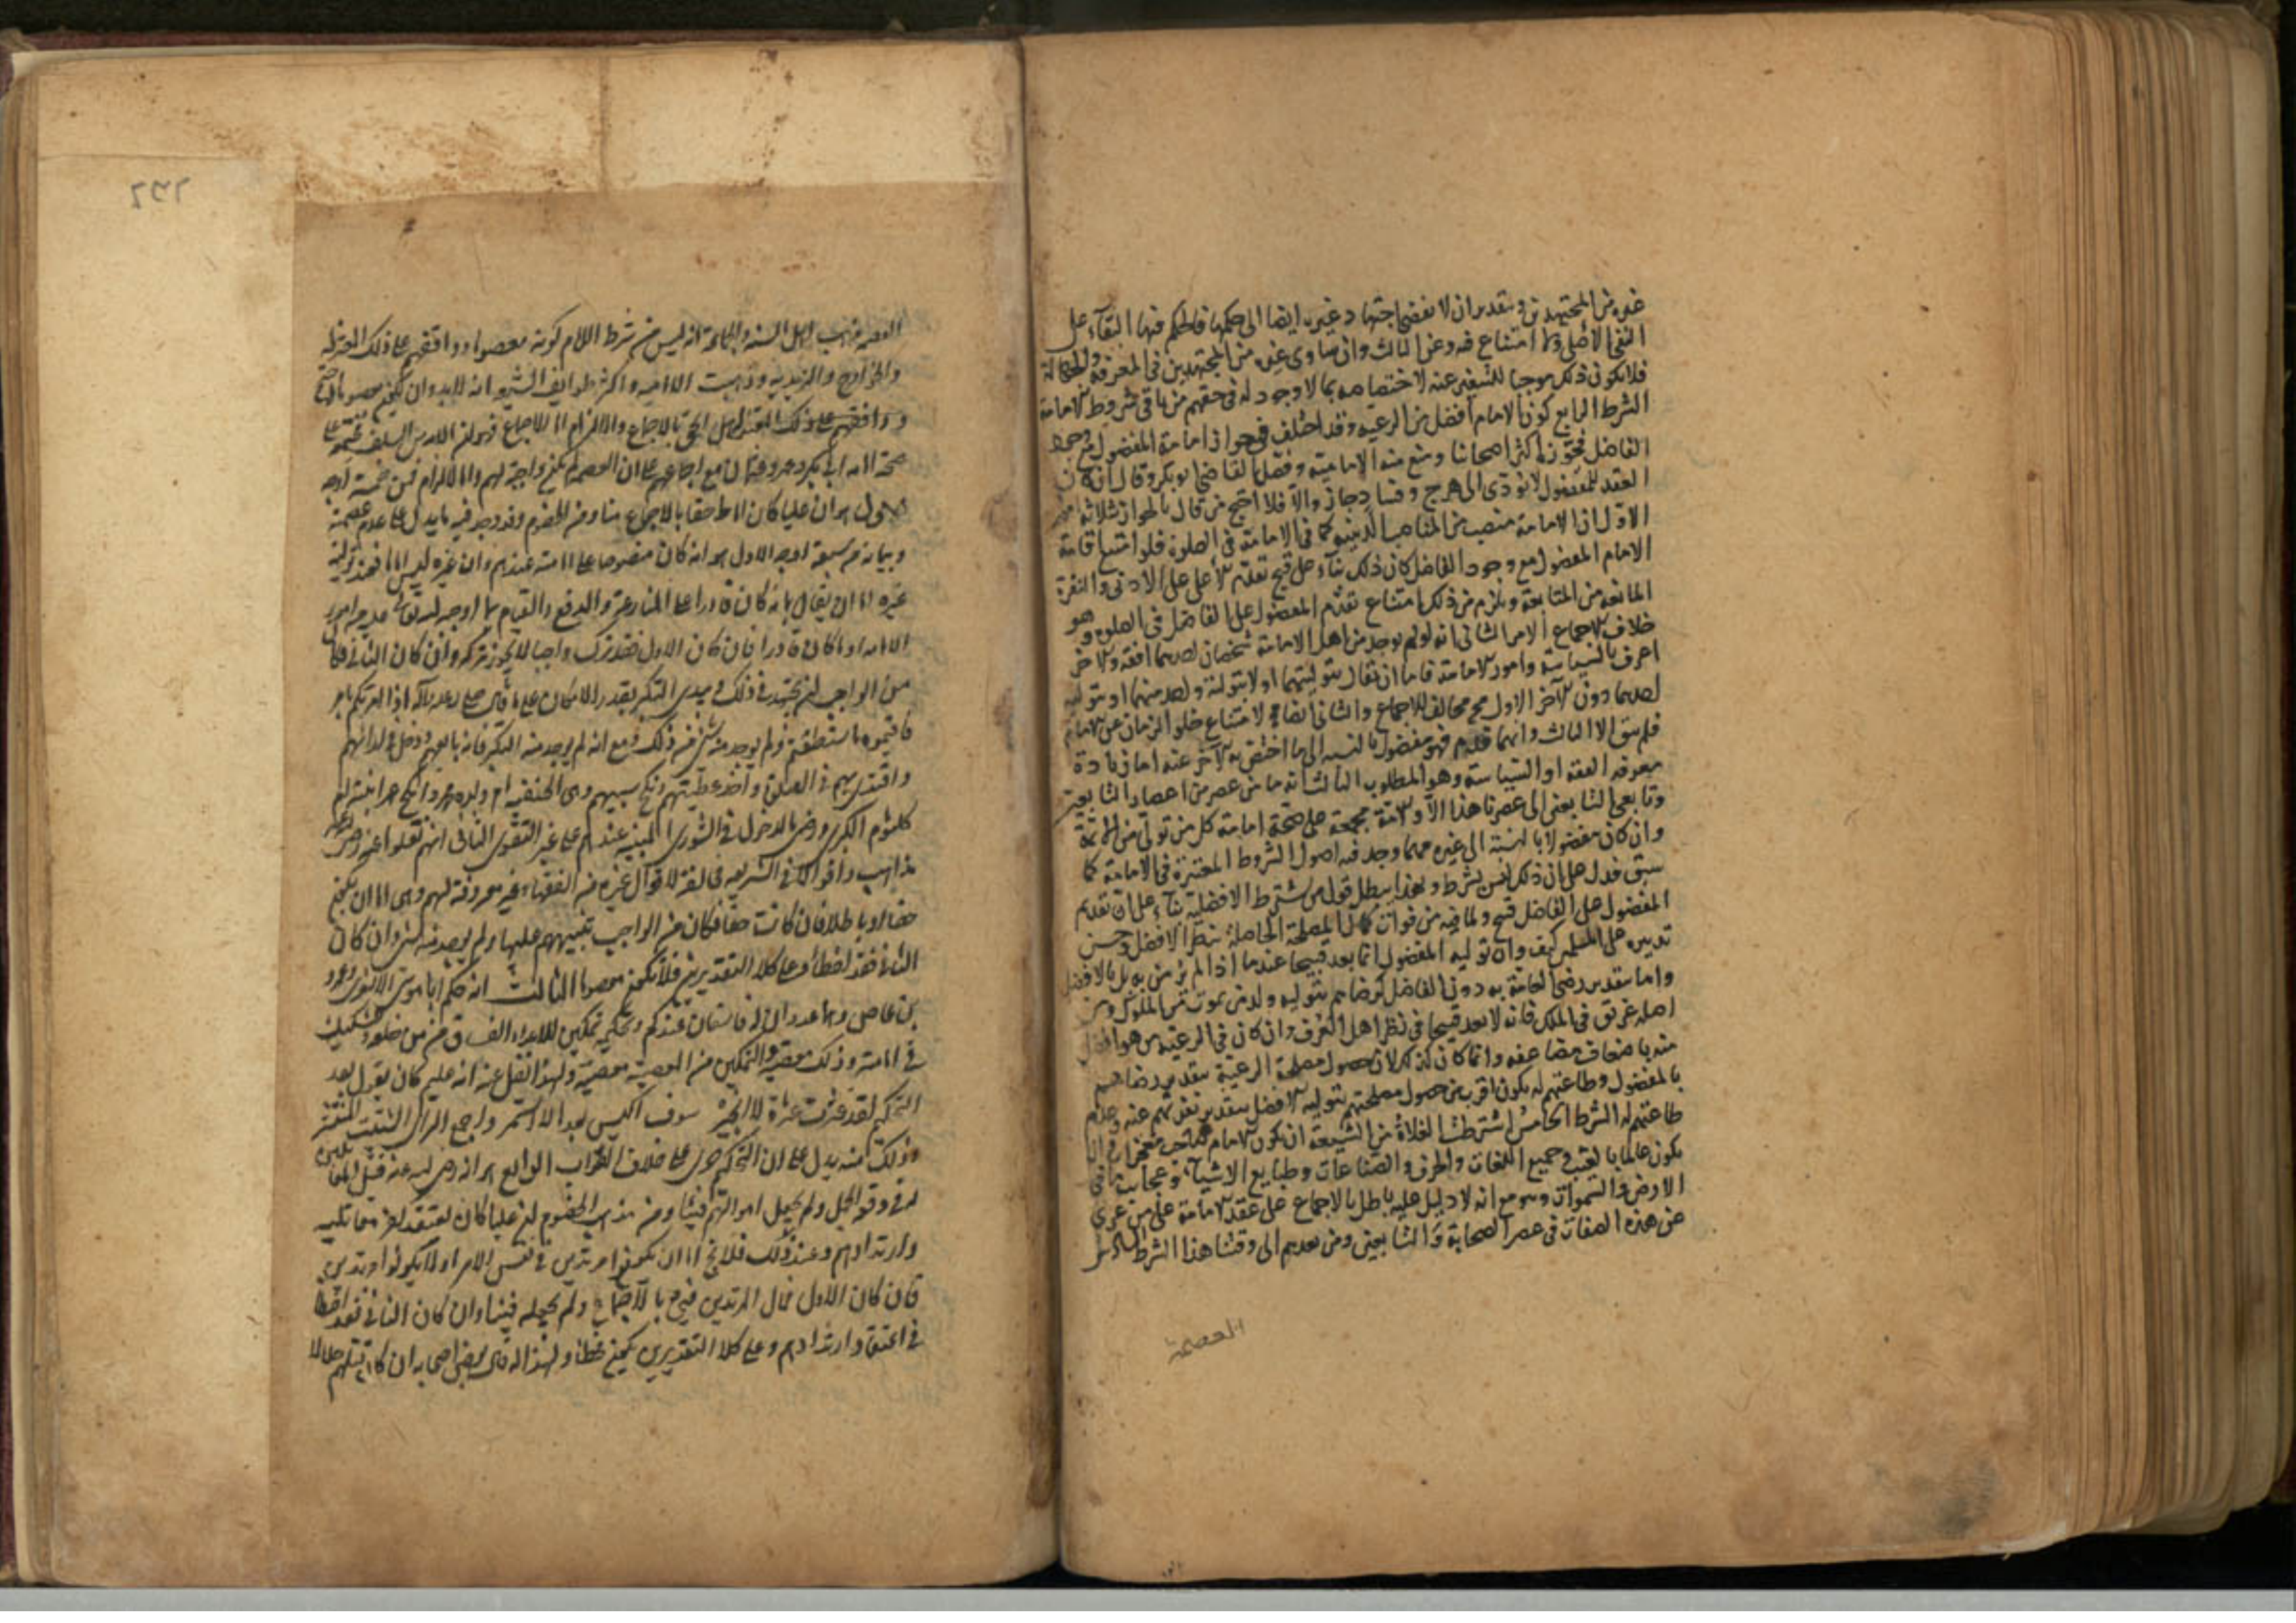 غيره من المجتهدين وبتقدير ان لا يفضى اجتهاد غيره ايضا الى حكمها فالحكم فيها البقاء على
النفى الاصلى ولا امتناع فيه وعن الثالث وان ساوى غيره من المجتهدين فى المعرفة والعدالة
فلا يكون ذلك موجبا للتبعية عنه لاختصاصه بما لا وجود له فى حقهم من باقى شروط الامامة
الشرط الرابع كون الامام افضل من الرعية وقد اختلف فى جواز امامة المفضول مع وجود
الفاضل فجوزه اكثر اصحابنا ومنع منه الامامية وفصل القاضى ابو بكر وقال ان كان
العقد للمفضول لا يؤدى الى هرج وفساد جاز والا فلا احتج من قال بالجواز بثلاثة امور
الاول ان الامامة منصب من المناصب الدينية كما فى الامامة فى الصلوة فلو امتنع اقامة
الامام المفضول مع وجود الفاضل كان ذلك بناء على قبح تقدم الاعلى على الادنى والنفرة
المانعة من المتابعة ويلزم من ذلك امتناع تقدم المفضول على الفاضل فى الصلوة وهو
خلاف الاجماع الامر الثانى انه لو لم يوجد من اهل الامامة شخصان احدهما افقه والاخر
اعرف بالسياسة وامور الامامة فاما ان يقال بتوليتهما او لا بتولية واحد منهما او بتولية
احدهما دون الآخر الاول محال مخالف للاجماع والثانى ايضا لامتناع خلو الزمان عن الامام
فلم يبق الا الثالث وايهما قدم فهو مفضول بالنسبة الى ما اختص به الآخر عنه اما زيادة
معرفة الفقه او السياسة وهو المطلوب الثالث انه ما من عصر من اعصار التابعين
وتابعى التابعين الى عصرنا هذا الا والامة مجمعة على صحة امامة كل من تولى من الائمة
وان كان مفضولا بالنسبة الى غيره مهما وجد فيه اصول الشروط المعتبرة فى الامامة كما
سبق فدل على ان ذلك ليس بشرط وبهذا يبطل قول من يشترط الافضلية بناء على ان تقديم
المفضول على الفاضل قبح ولما فيه من فوات كمال المصلحة الحاصلة بنظر الافضل وحسن
تدبيره على المسلمين كيف وان تولية المفضول انما يعد قبيحا عندما اذا لم
واما بتقدير رضى العامة به دون الفاضل كرضاهم بتولية ولد من يموت من الملوك ومن
اصله عريق فى الملك فانه لا يعد قبيحا فى نظر اهل العرف وان كان فى الرعية من هو افضل
منه باضعاف مضاعفة وانما كان كذلك لان حصول مصلحة الرعية بتقدير رضاهم
بالمفضول وطاعتهم له يكون اقرب من حصول مصلحتهم بتولية الافضل بتقدير نفرتهم عنه وعدم
طاعتهم له الشرط الخامس اشترطت الغلاة من الشيعة ان يكون الامام صاحب معجزات وان
يكون عالما بالغيب وجميع اللغات والحرف والصناعات وطبايع الاشياء وعجايب ما فى
الارض والسموات وهو مع انه لا دليل عليه باطل بالاجماع على عقد الامامة على من عرى
عن هذه الصفات فى عصر الصحابة والتابعين ومن بعدهم الى وقتنا هذا الشرط السادس
العصمة
٢٦٢
العصمة مذهب اهل السنة والجماعة انه ليس من شرط الامام كونه معصوما ووافقهم على ذلك المعتزلة
والخوارج والزيدية وذهبت الامامية واكثر طوايف الشيعة انه لا بد وان يكون معصوما
ووافقهم على ذلك اهل الحق بالاجماع والالزام اما الاجماع فهو ان الامة من السلف مجتمعة على
صحة امامة ابى بكر وعمر وعثمان مع اجماعهم على ان العصمة لم تكن واجبة لهم واما الالزام فمن خمسة اوجه
الاول هو ان عليا كان اماما حقا بالاجماع منا ومن الخصوم وقد وجد فيه ما يدل على عدم عصمته
وبيانه من سبعة اوجه الاول هو انه كان منصوصا على امامته عندهم وان غيره ليس اماما فعند تولية
غيره اما ان يقال بانه كان قادرا على المنازعة والدفع والقيام بما اوجبه الله تعالى عليه من امور
الامامة او ما كان قادرا فان كان الاول فقد ترك واجبا لا يجوز تركه وان كان الثانى فكان
من الواجب ان يجتهد فى ذلك ويبدى النكير بقدر الامكان على ما قال صلى الله عليه وآله اذا امرتكم بامر
فأتوه ما استطعتم ولم يوجد منه شىء من ذلك ومع انه لم يوجد منه النكير فانه بايعهم ودخل فى آرائهم
واقتدى بهم فى الصلوة واخذ عطيتهم ونكح سبيهم وهى الحنفية ام ولده محمد وانكح عمر ابنته ام
كلثوم الكبرى ورضى بالدخول فى الشورى المبنية عندهم على غير التقوى الثانى انهم نقلوا عنه
مذاهب واقوالا فى الشريعة مخالفة لاقوال غيره من الفقهاء غير معروفة لهم وهى اما ان يكون
حقا او باطلا فان كانت حقا فكان من الواجب تنبيههم عليها ولم يوجد منه شىء وان كان
الثانى فقد اخطأ وعلى كلا التقديرين فلا يكون معصوما الثالث انه حكم ابا موسى الاشعرى وعمرو
بن عاص وهما عدوان له فاسقان عندكم وتحكيمه تمكين للاعداء الفساق من خلعه وتشكيك
فى امامته وذلك معصية والتمكين من المعصية معصية ولهذا نقل عنه انه عليه كان يقول بعد
التحكيم لقد عثرت عثرة لا تنجبر سوف اكيس بعدها واستمر واجمع الراى الشتيت المنتشر
وذلك منه يدل على ان التحكيم جرى على خلاف الصواب الرابع
له فى وقعة الجمل ولم يجعل اموالهم فيئا ومن مذهب الخصوم ان عليا كان يعتقد كفر مقاتليه
وارتدادهم وعند ذلك فلا يخ اما ان يكونوا مرتدين فى نفس الامر او لا يكونوا مرتدين
فان كان الاول فمال المرتدين فىء بالاجماع ولم يجعله فيئا وان كان الثانى فقد اخطأ
فى اعتقاد ارتدادهم وعلى كلا التقديرين يكون مخطئا ولهذا قال له بعض اصحابه ان كان قتلهم حلالا